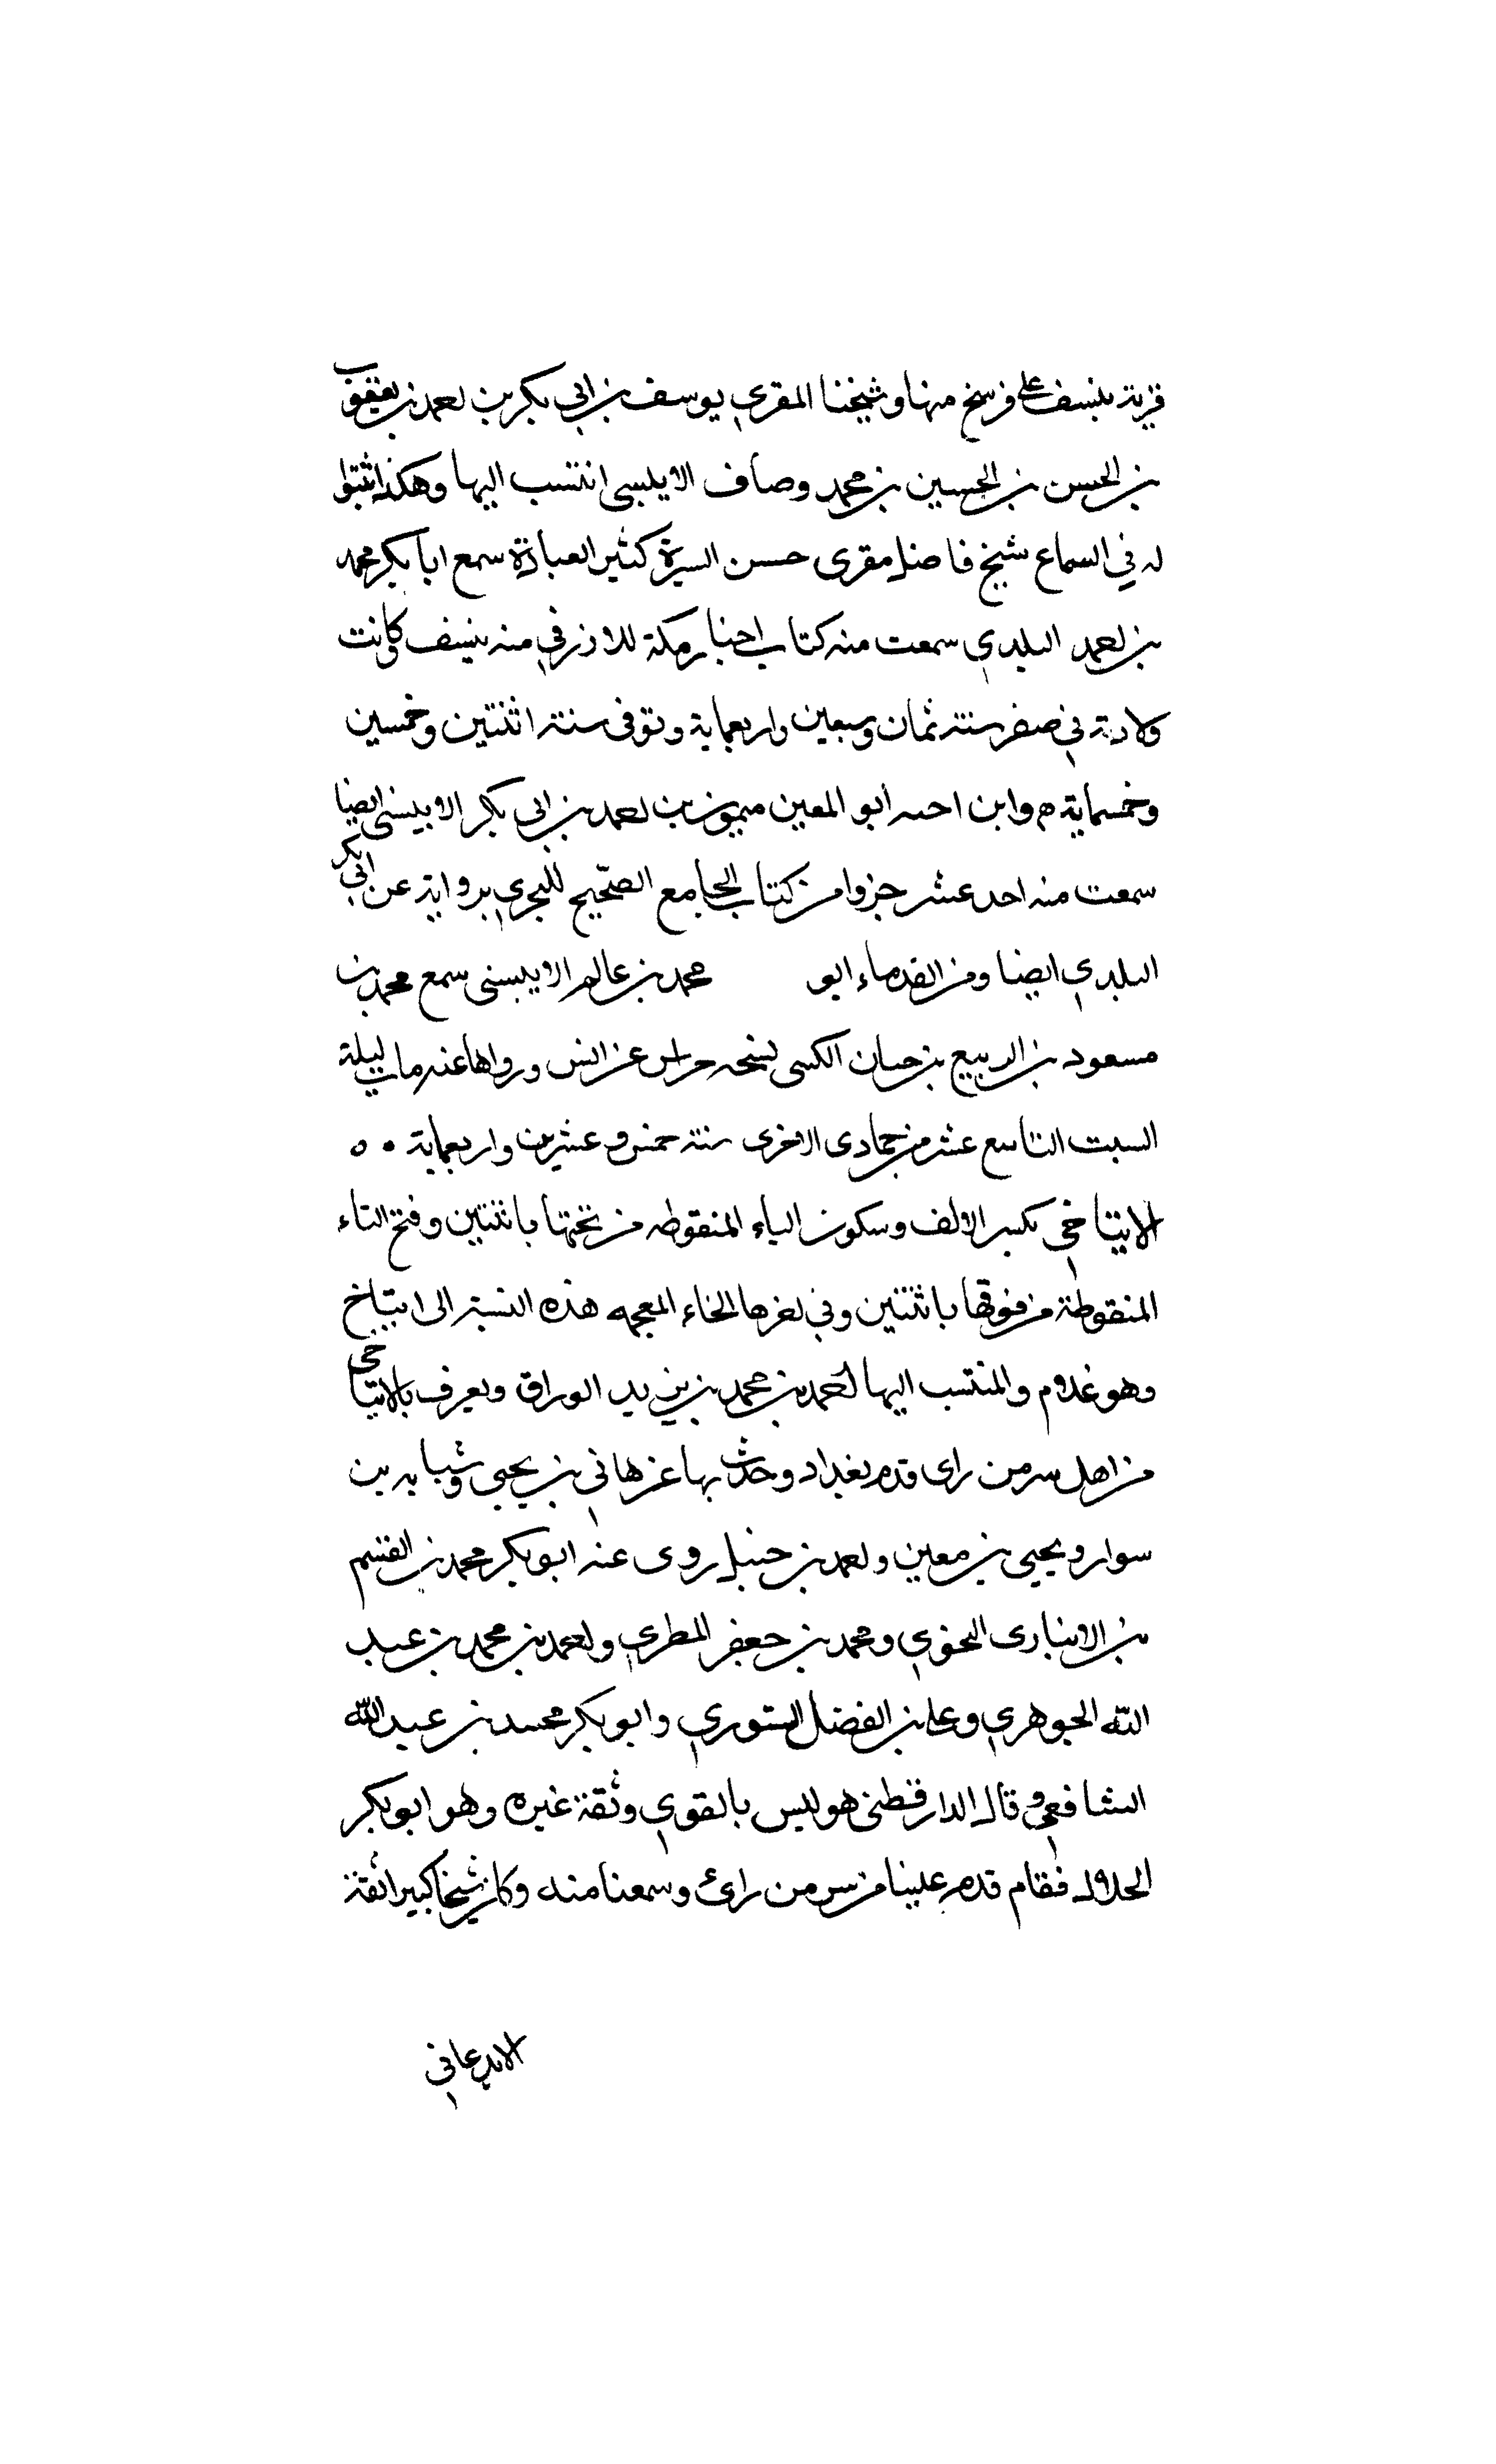 قرية بنسف على فرسخ منها وشيخنا المقري يوسف بن ابي بكر بن احمد بن يعقوب
بن الحسن بن الحسين بن محمد وصاف الايبسى انتسب اليها وهكذا اثبتوا
له في السماع شيخ فاضل مقرى حسن السيرة كثير العبادة سمع ابا بكر محمد
بن احمد البلدي سمعت منه كتاب اخبار مكة للازرقي منه بنسف وكانت
ولادته في صفر سنة ثمان وسبعين واربعماية وتوفى سنة اثنتين وخمسين
وخمسماية م وابن احىه ابو المعين ميمون بن احمد بن ابى بكر الايبسنى ايضا
سمعت منه احد عشر جزوا من كتاب الجامع الصحيح للبجري بروايته عن ابي بكر
البلدي ايضا ومن القدماء ابو محمد بن عالم الايبسنى سمع محمد بن
مسعود بن الربيع بن حسان الكسى نسخه حراس عن انس ورواها عنه مات ليلة
السبت التاسع عشر من جمادى الاخرى سنة خمس وعشرين واربعماية ٥ ٥
الايتاخي بكسر الالف وسكون الياء المنقوطه من تحتها باثنتين وفتح التاء
المنقوطة من فوقها باثنتين وفي اخرها الخاء المعجمه هذه النسبة الى ايتاخ
وهو غلام والمنتسب اليها احمد بن محمد بن يزيد الوراق ويعرف بالايتاخي
من اهل سر من راى قدم بغداد وحدث بها عن هاني بن يحيى وشبابه بن
سوار ويحيى بن معين واحمد بن حنبل روى عنه ابو بكر محمد بن القسم
بن الانبارى النحوي ومحمد بن جعفر المطري واحمد بن محمد بن عبد
الله الجوهري وعلي بن الفضل الستوري وابو بكر محمد بن عبد الله
الشافعي وقال الدارقطنى هو ليس بالقوي وثقة غيره وهو ابو بكر
الخلال فقام قدم علينا من سر من راى وسمعنا منه وكان شيخا كبيرا ثقة
الايدعاني